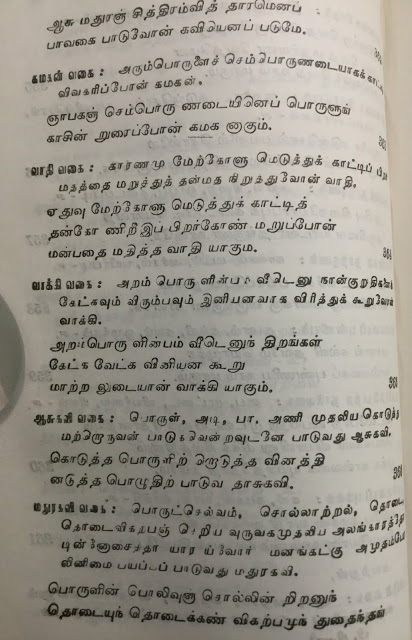 ஆசு மதுரஞ் சித்திரம்வித் தாரமெனப்
பாவகை பாடுவோன் கவியெனப் படுமே.
கமகன் வகை : அரும்பொருளைச் செம்பொருணடையாகக்
விவகரிப்போன் கமகன்.
ஞாபகஞ் செம்பொரு ணடையினெப் பொருளும்
காசின் றுரைப்போன் கமக னாகும்.
வாதி வகை : காரணமு மேற்கோளு மெடுத்துக் காட்டிப்
மதத்தை மறுத்துத் தன்மத நிறுத்துவோன் வாதி.
ஏதுவு மேற்கோளு மெடுத்துக் காட்டித்
தன்கோ ணிறீஇப் பிறர்கோண் மறுப்போன்
மன்பதை மதித்த வாதி யாகும்.
வாக்கி வகை : அறம் பொரு ளின்பம் வீடெனு நான்குறுதிகளைக்
கேட்கவும் விரும்பவும் இனியனவாக விரித்துக் கூறுவோன்
வாக்கி.
அறம்பொரு ளின்பம் வீடெனுந் திறங்கள்
கேட்க வேட்க வினியன கூறு
மாற்ற லுடையான் வாக்கி யாகும்.
ஆசுகவி வகை : பொருள், அடி, பா, அணி முதலிய கொடுத்த
மற்றொருவன் பாடுகவென்றவுடனே பாடுவது ஆசுகவி.
கொடுத்த பொருளிற் றொடுத்த வினத்தி
னடுத்த பொழுதிற் பாடுவ தாசுகவி.
மதுரகவி வகை : பொருட்செல்வம், சொல்லாற்றல், தொடை,
தொடைவிகற்பஞ் செறிய வுருவகமுதலிய அலங்காரத்தோ
டின்னோசைத்தா யாராய்வோர் மனங்கட்கு
லினிமை பயப்பப் பாடுவது மதுரகவி.
பொருளின் பொலிவுஞ் சொல்லின் றிறனுந்
தொடையுந் தொடைக்கண் விகற்பமுந் துதைந்துந்